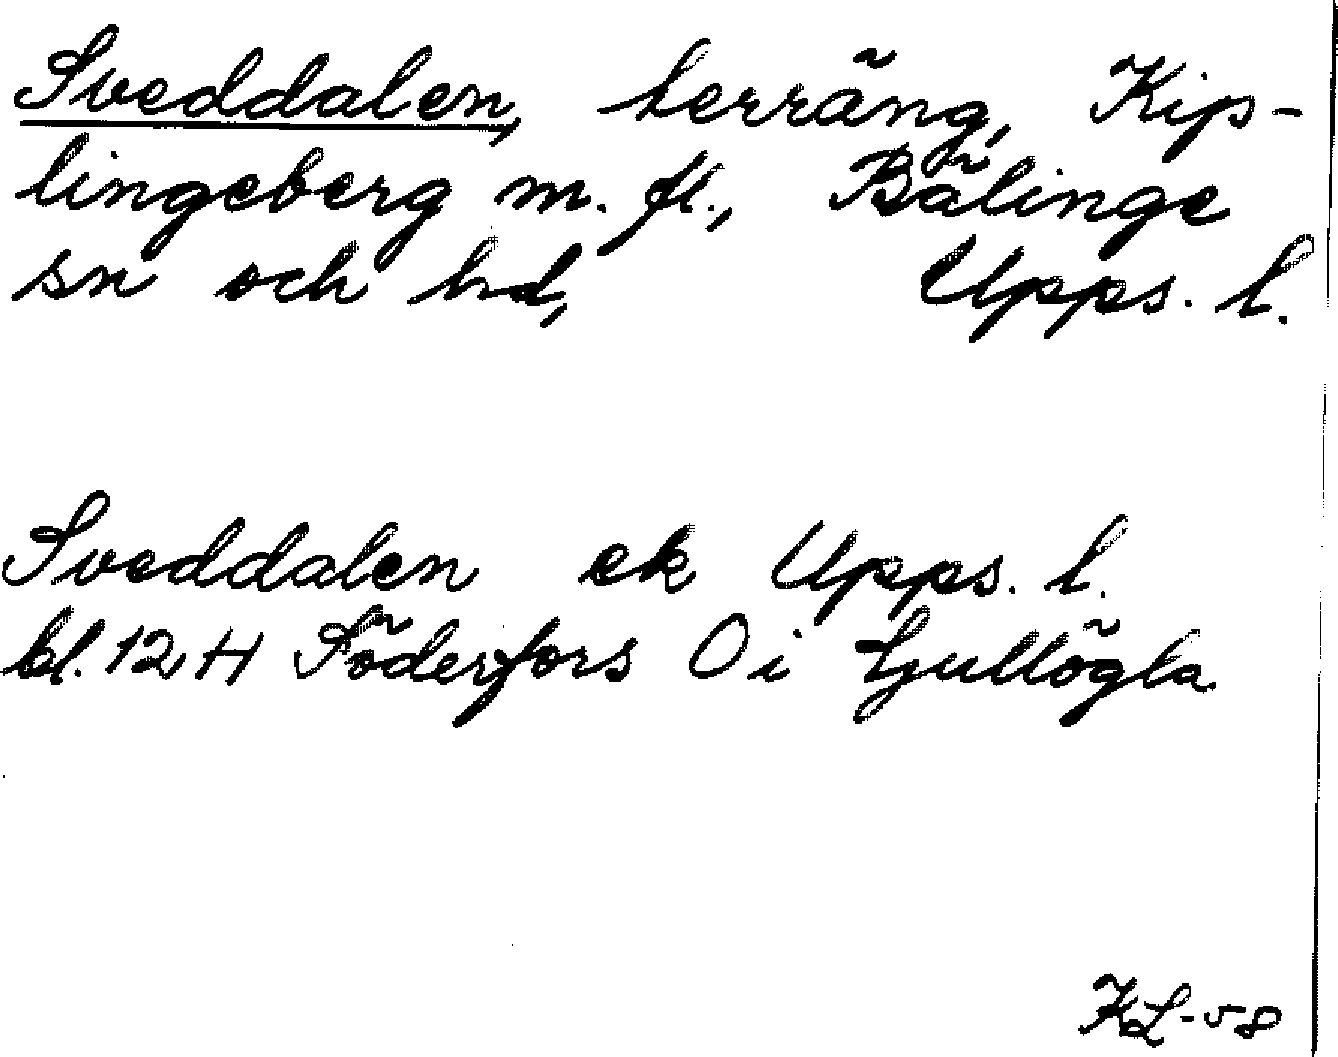 Sveddalen, terräng, Kip-
lingeberg m. fl., Bälinge
sn och hd, Upps. l.
Sveddalen ek Upps. l.
bl. 12 H Söderfors O i Ljullögla
KL-58